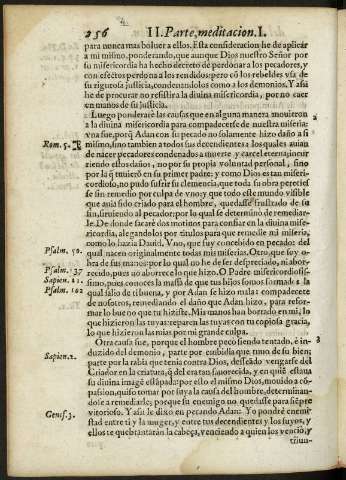 256 II. Parte, meditacion. I.
para nunca mas boluer a ellos. Esta consideracion he de aplicar
a mi mismo, ponderando, que aunque Dios nuestro Señor por
su misericordia ha hecho decreto de perdonar a los pecadores, y
con efecto perdona a los rendidos: pero cõ los rebeldes vsa de
su rigurosa justicia, condenandolos como a los demonios. Y assi
he de procurar no resistir a la diuina misericordia, por no caer
en manos de su justicia.
Luego ponderarè las causas que en alguna manera mouieron 2
a la diuina misericordia para compadecerse de nuestra miseria:
vna fue, porq̃ Adan con su pecado no solamente hizo daño a si
Rom. 5. mismo, sino tambien a todos sus decendientes: los quales auian
de nacer pecadores condenados a muerte y carcel eterna, incur
riendo estos daños, no por su propia voluntad personal, sino
por la q̃ tuuierõ en su primer padre; y como Dios es tan miseri-
cordioso, no pudo sufrir su clemencia, que toda su obra pereciesse
se sin remedio por culpa de vno, y que todo este mundo visible
que auia sido criado para el hombre, quedasse frustrado de su
fin, siruiendo al pecador: por lo qual se determinò de remediar-
le. De donde sacarè dos motiuos para confiar en la diuina mise-
ricordia, alegandolos por titulos para que remedie mi miseria,
como lo hazia Dauid. Vno, que soy concebido en pecado: del
Psalm. 50. qual nacen originalmente todas mis miserias. Otro, que soy o-
bra de sus manos: por lo qual no he de ser despreciado, ni abor-
Psalm. 137 recido, pues no aborrece lo que hizo. O Padre misericordiosis-
Sapien. 11. simo, pues conoces la massa de que tus hijos somos formados: la
Psalm. 102 qual salio de tibuena, y por Adan se hizo mala: compadecete
de nosotros, remediando el daño que Adan hizo, para refor-
mar lo bueno que tu hiziste. Mis manos han borrado en mi, lo
que hizieron las tuyas: reparen las tuyas con tu copiosa gracia,
lo que hizieron las mias por mi grande culpa.
Otra causa fue, porque el hombre pecò siendo tentado, è in- 3
Sapien. 2. duzido del demonio, parte por embidia que tuuo de su bien;
parte por la rabia que tenia contra Dios, desseãdo vengarse del
Criador en la criatura, q̃ del era tan fauorecida, y en quiẽ estaua
su diuina imagẽ estãpada: por esto el mismo Dios, mouido a cõ-
passion, quiso tomar por suya la causa del hombre, determinan-
dose a remediarle; porque su enemigo no quedasse para siẽpre
vitorioso. Y assi le dixo en pecando Adan: Yo pondrè enemi-
Genes. 3. stad entre ti y la muger, y entre tus decendientes y los suyos, y
ellos te quebrantaràn la cabeça, venciendo a quien los venciò, y
triun-